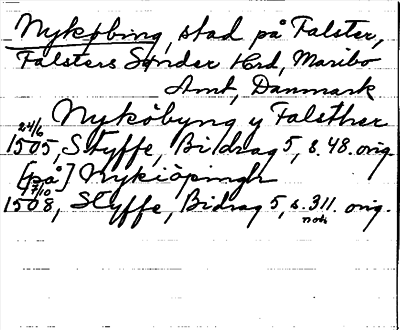 Nykøbing, stad på Falster,
Falsters Sønder Hrd, Maribo
Amt, Danmark
Nykøbyng y Falsther
24/6
1505, Styffe, Bidrag 5, s. 48. orig.
[på] Nykiøpingh
17/10
1508, Styffe, Bidrag 5, s. 311. orig.
not.